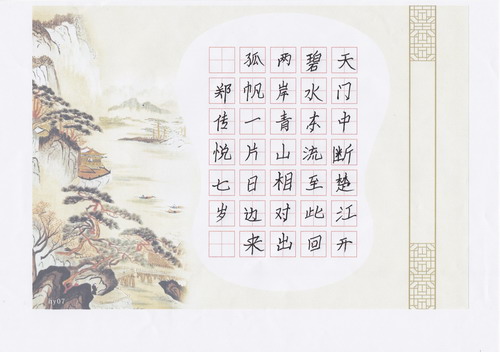 天门中断楚江开
碧水东流至此回
两岸青山相对出
孤帆一片日边来
郑传悦七岁
gy07